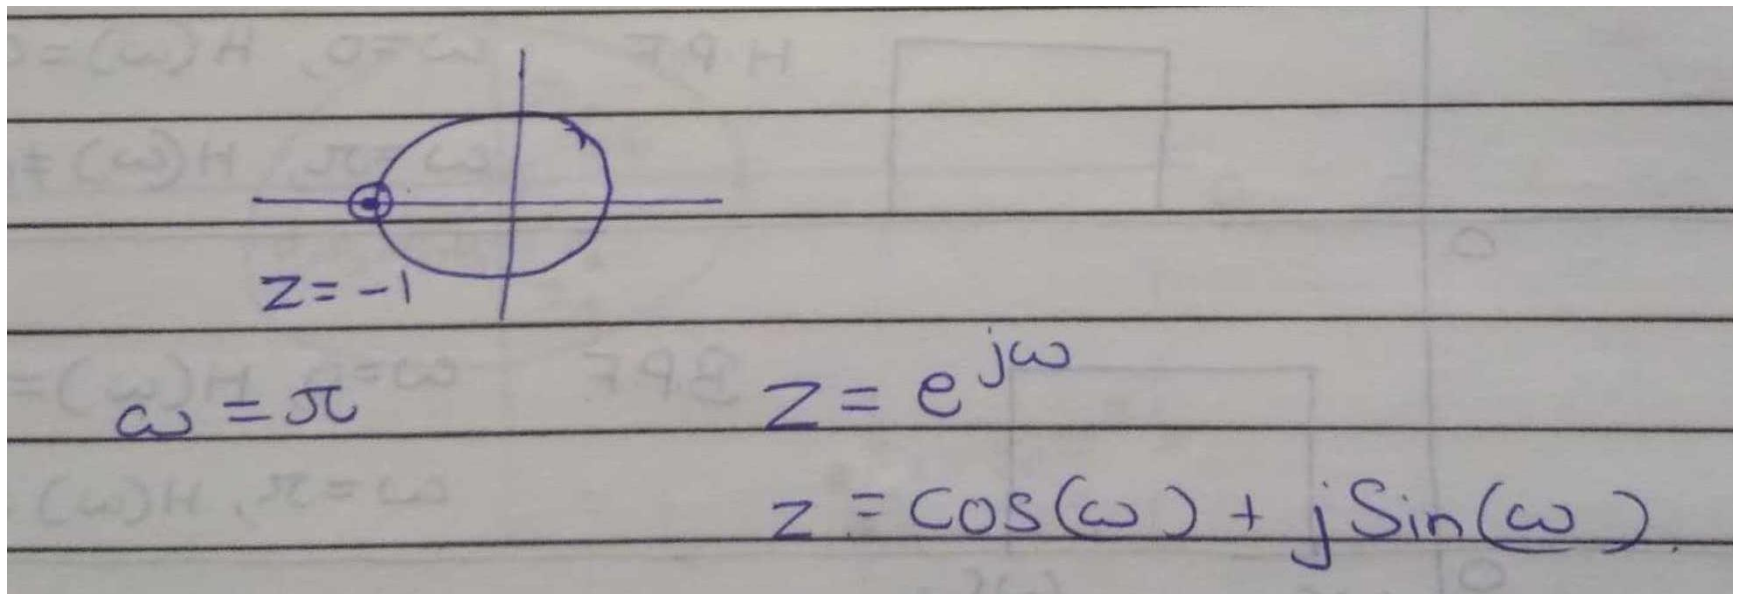 z = -1
ω = π
z = e^{jω}
z = cos(ω) + j Sin(ω).